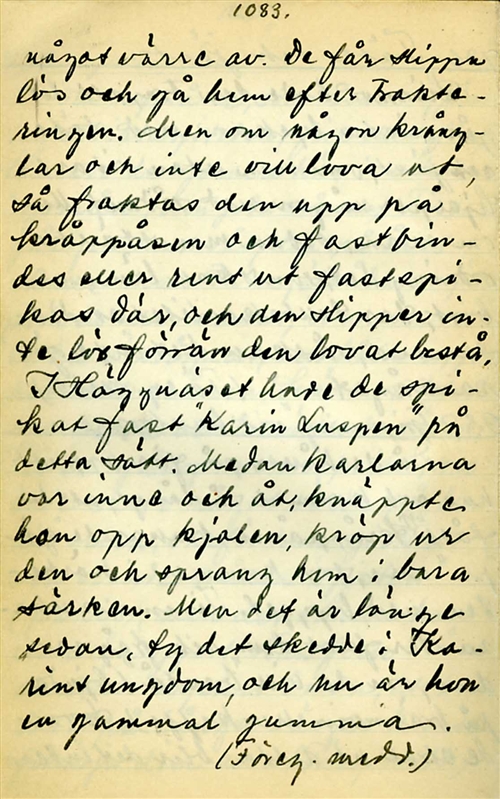 1083.
något värre av. De får slippa
lös och gå hem efter Frakte-
ringen. Men om någon kräng-
lar och inte vill lova ut,
så fraktas den upp på
kräppåsen och fastbin-
des eller rent ut fastspi-
kas där, och den slipper in-
te lös förrän den lovat bestå,
I Häggnäset hade de spi-
kat fast "Karin Luspen" på
detta sätt. Medan karlarna
var inne och åt, knäppte
hon opp kjolen, kröp ur
den och sprang hem i bara
särken. Men det är länge
sedan, ty det skedde i Ka-
rins ungdom, och nu är hon
en gammal gumma.
(Föreg. medd.)